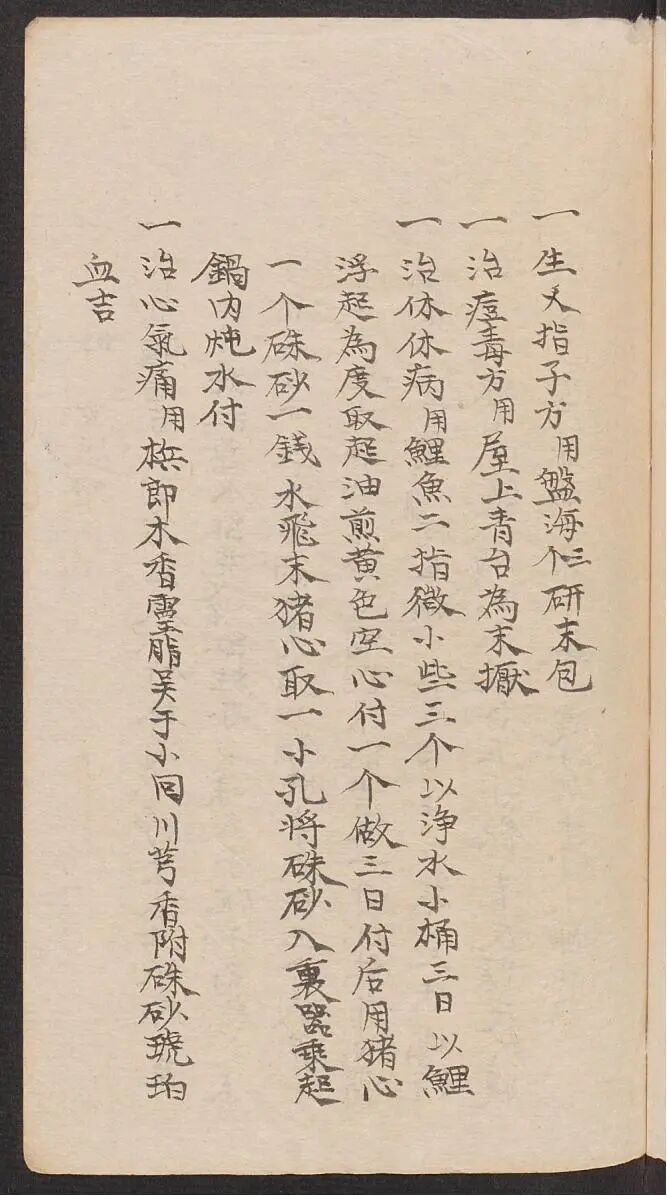 一生乂指子方用盤海个三研末包
一治痘毒方用屋上青台為末撳
一治休休病用鯉魚二指微小些三个以浄水小桶三日以鯉
浮起為度取起油煎黄色空心付一个做三日付后用猪心
一个硃砂一銭水飛末猪心取一小孔将硃砂入裏器乗起
鍋内炖水付
一治心氣痛用梹郎木香霊脂吴于小囬川芎香附硃砂琥珀
血吉